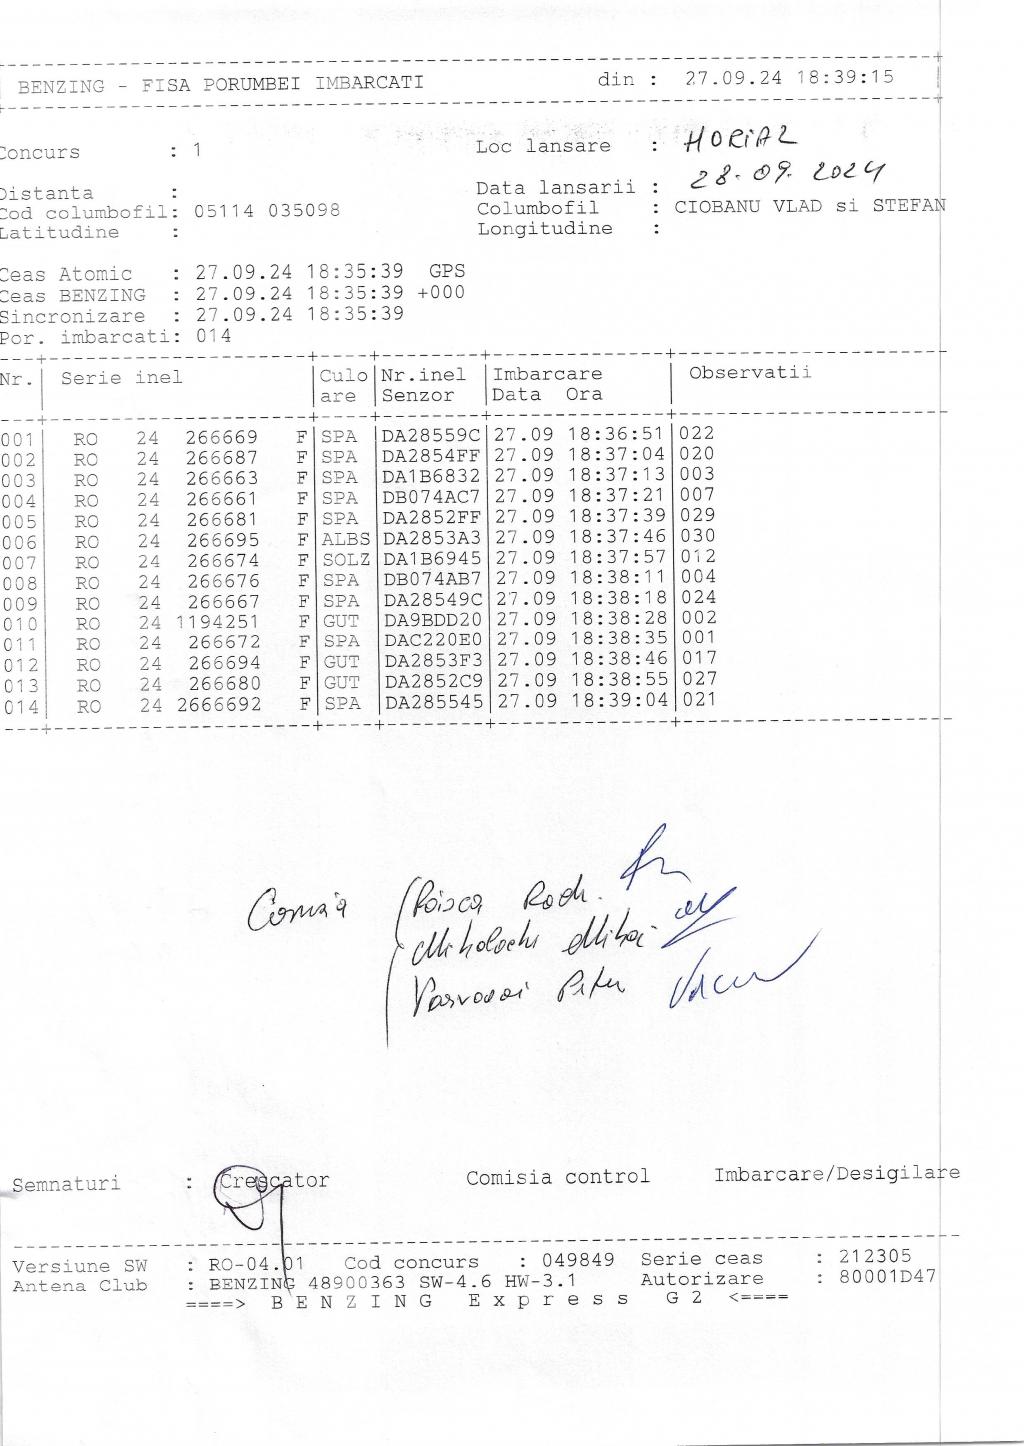 BENZING - FISA PORUMBEI IMBARCATI din : 27.09.24 18:39:15
Concurs : 1 Loc lansare : HORIA 2
Distanta : Data lansarii : 28.09.2024
Cod columbofil: 05114 035098 Columbofil : CIOBANU VLAD si STEFAN
Latitudine : Longitudine :
Ceas Atomic : 27.09.24 18:35:39 GPS
Ceas BENZING : 27.09.24 18:35:39 +000
Sincronizare : 27.09.24 18:35:39
Por. imbarcati: 014
Nr. Serie inel Culo Nr.inel Imbarcare Observatii
are Senzor Data Ora
001 RO 24 266669 F SPA DA28559C 27.09 18:36:51 022
002 RO 24 266687 F SPA DA2854FF 27.09 18:37:04 020
003 RO 24 266663 F SPA DA1B6832 27.09 18:37:13 003
004 RO 24 266661 F SPA DB074AC7 27.09 18:37:21 007
005 RO 24 266681 F SPA DA2852FF 27.09 18:37:39 029
006 RO 24 266695 F ALBS DA2853A3 27.09 18:37:46 030
007 RO 24 266674 F SOLZ DA1B6945 27.09 18:37:57 012
008 RO 24 266676 F SPA DB074AB7 27.09 18:38:11 004
009 RO 24 266667 F SPA DA28549C 27.09 18:38:18 024
010 RO 24 1194251 F GUT DA9BDD20 27.09 18:38:28 002
011 RO 24 266672 F SPA DAC220E0 27.09 18:38:35 001
012 RO 24 266694 F GUT DA2853F3 27.09 18:38:46 017
013 RO 24 266680 F GUT DA2852C9 27.09 18:38:55 027
014 RO 24 2666692 F SPA DA285545 27.09 18:39:04 021
Mihai
Semnaturi : Crescator Comisia control Imbarcare/Desigilare
Versiune SW : RO-04.01 Cod concurs : 049849 Serie ceas : 212305
Antena Club : BENZING 48900363 SW-4.6 HW-3.1 Autorizare : 80001D47
====> B E N Z I N G E x p r e s s G 2 <====